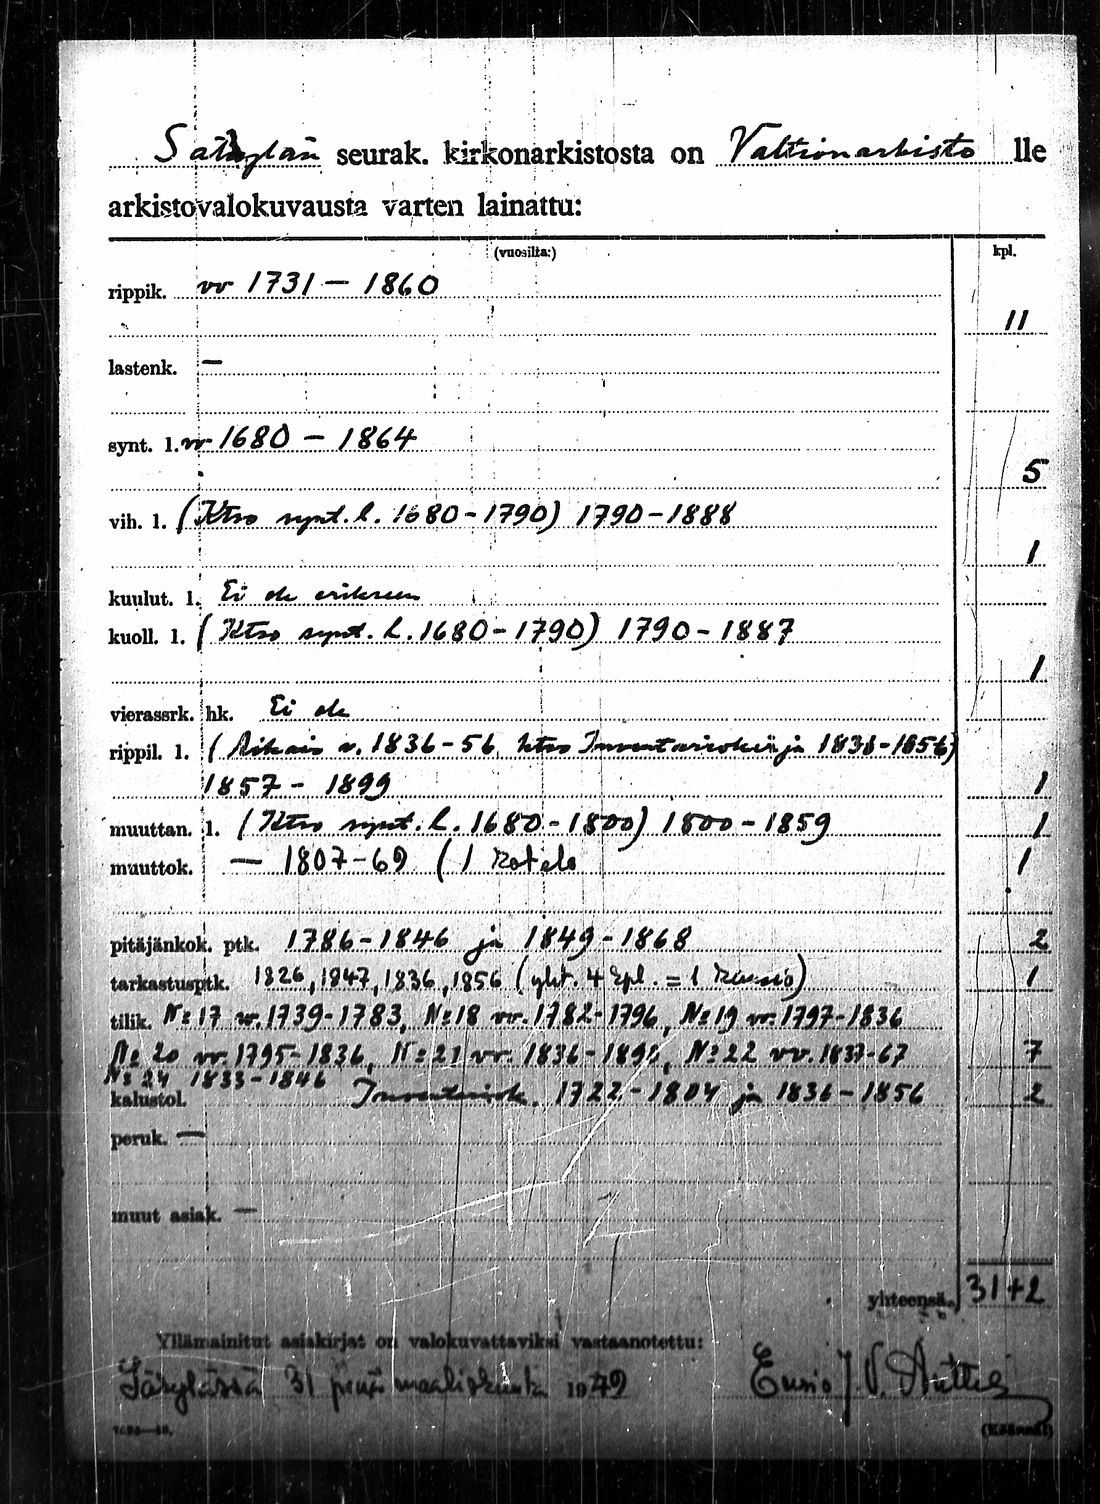 Säkylän seurak. kirkonarkistosta on Valtionarkisto lle
arkistovalokuvausta varten lainattu:
(vuosilta:) kpl.
rippik. vv 1731 – 1860
11
lastenk. —
synt. l. vv 1680 – 1864
5
vih. l. (Ktso synt. l. 1680-1790) 1790-1888
1
kuulut. l. Ei ole erikseen
kuoll. l. (Ktso synt. l. 1680-1790) 1790-1887
1
vierassrk. hk. Ei ole
rippil. l. (Aikais v. 1836-56, ktso Inventariokirja 1836-1856)
1857 - 1899 1
muuttan. l. (Ktso synt. l. 1680-1800) 1800-1859 1
muuttok. — 1807-69 (1 kotelo 1
pitäjänkok. ptk. 1786-1846 ja 1849-1868 2
tarkastusptk. 1826, 1847, 1836, 1856 (yht. 4 kpl. = 1 kansio) 1
tilik. No 17 vv. 1739-1783, No 18 vv. 1782-1796, No 19 vv. 1797-1836
No 20 vv. 1795-1836, No 21 vv. 1836-1894, No 22 vv. 1837-67 7
No 24 1833-1846
kalustol. Inventariok. 1722-1804 ja 1836-1856 2
peruk. —
muut asiak. —
yhteensä. 31+2
Yllämainitut asiakirjat on valokuvattaviksi vastaanotettu:
Säkylässä 31 p:nä maaliskuuta 1949 Ensio J. V.
(Käännä!)